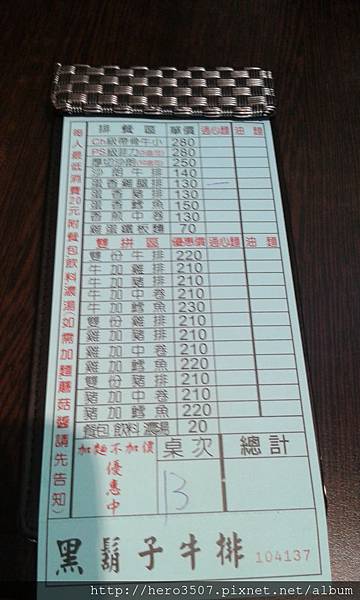 每人最低消費20元附餐包,飲料,濃湯(如需加麵.蘑菇醬請先告知)
排餐區 單價 通心麵 油麵
Ch級帶骨牛小 280
PS級菲力 280
厚切沙朗 250
沙朗牛排 140
蛋香雞腿排 130
蛋香豬排 130
蛋香鱈魚 150
香煎中卷 130
雞蛋鐵板麵 70
雙拼區 優惠價 通心麵 油麵
雙份牛排 220
牛加雞排 210
牛加豬排 210
牛加中卷 210
牛加鱈魚 230
雙份雞排 210
雞加豬排 210
雞加中卷 210
雞加鱈魚 220
雙份豬排 210
豬加中卷 210
豬加鱈魚 220
餐包 飲料 濃湯 20
加麵不加價
優惠中
桌次 總計
13
黑鬍子牛排 104137
http://hero3507.pixnet.net/album